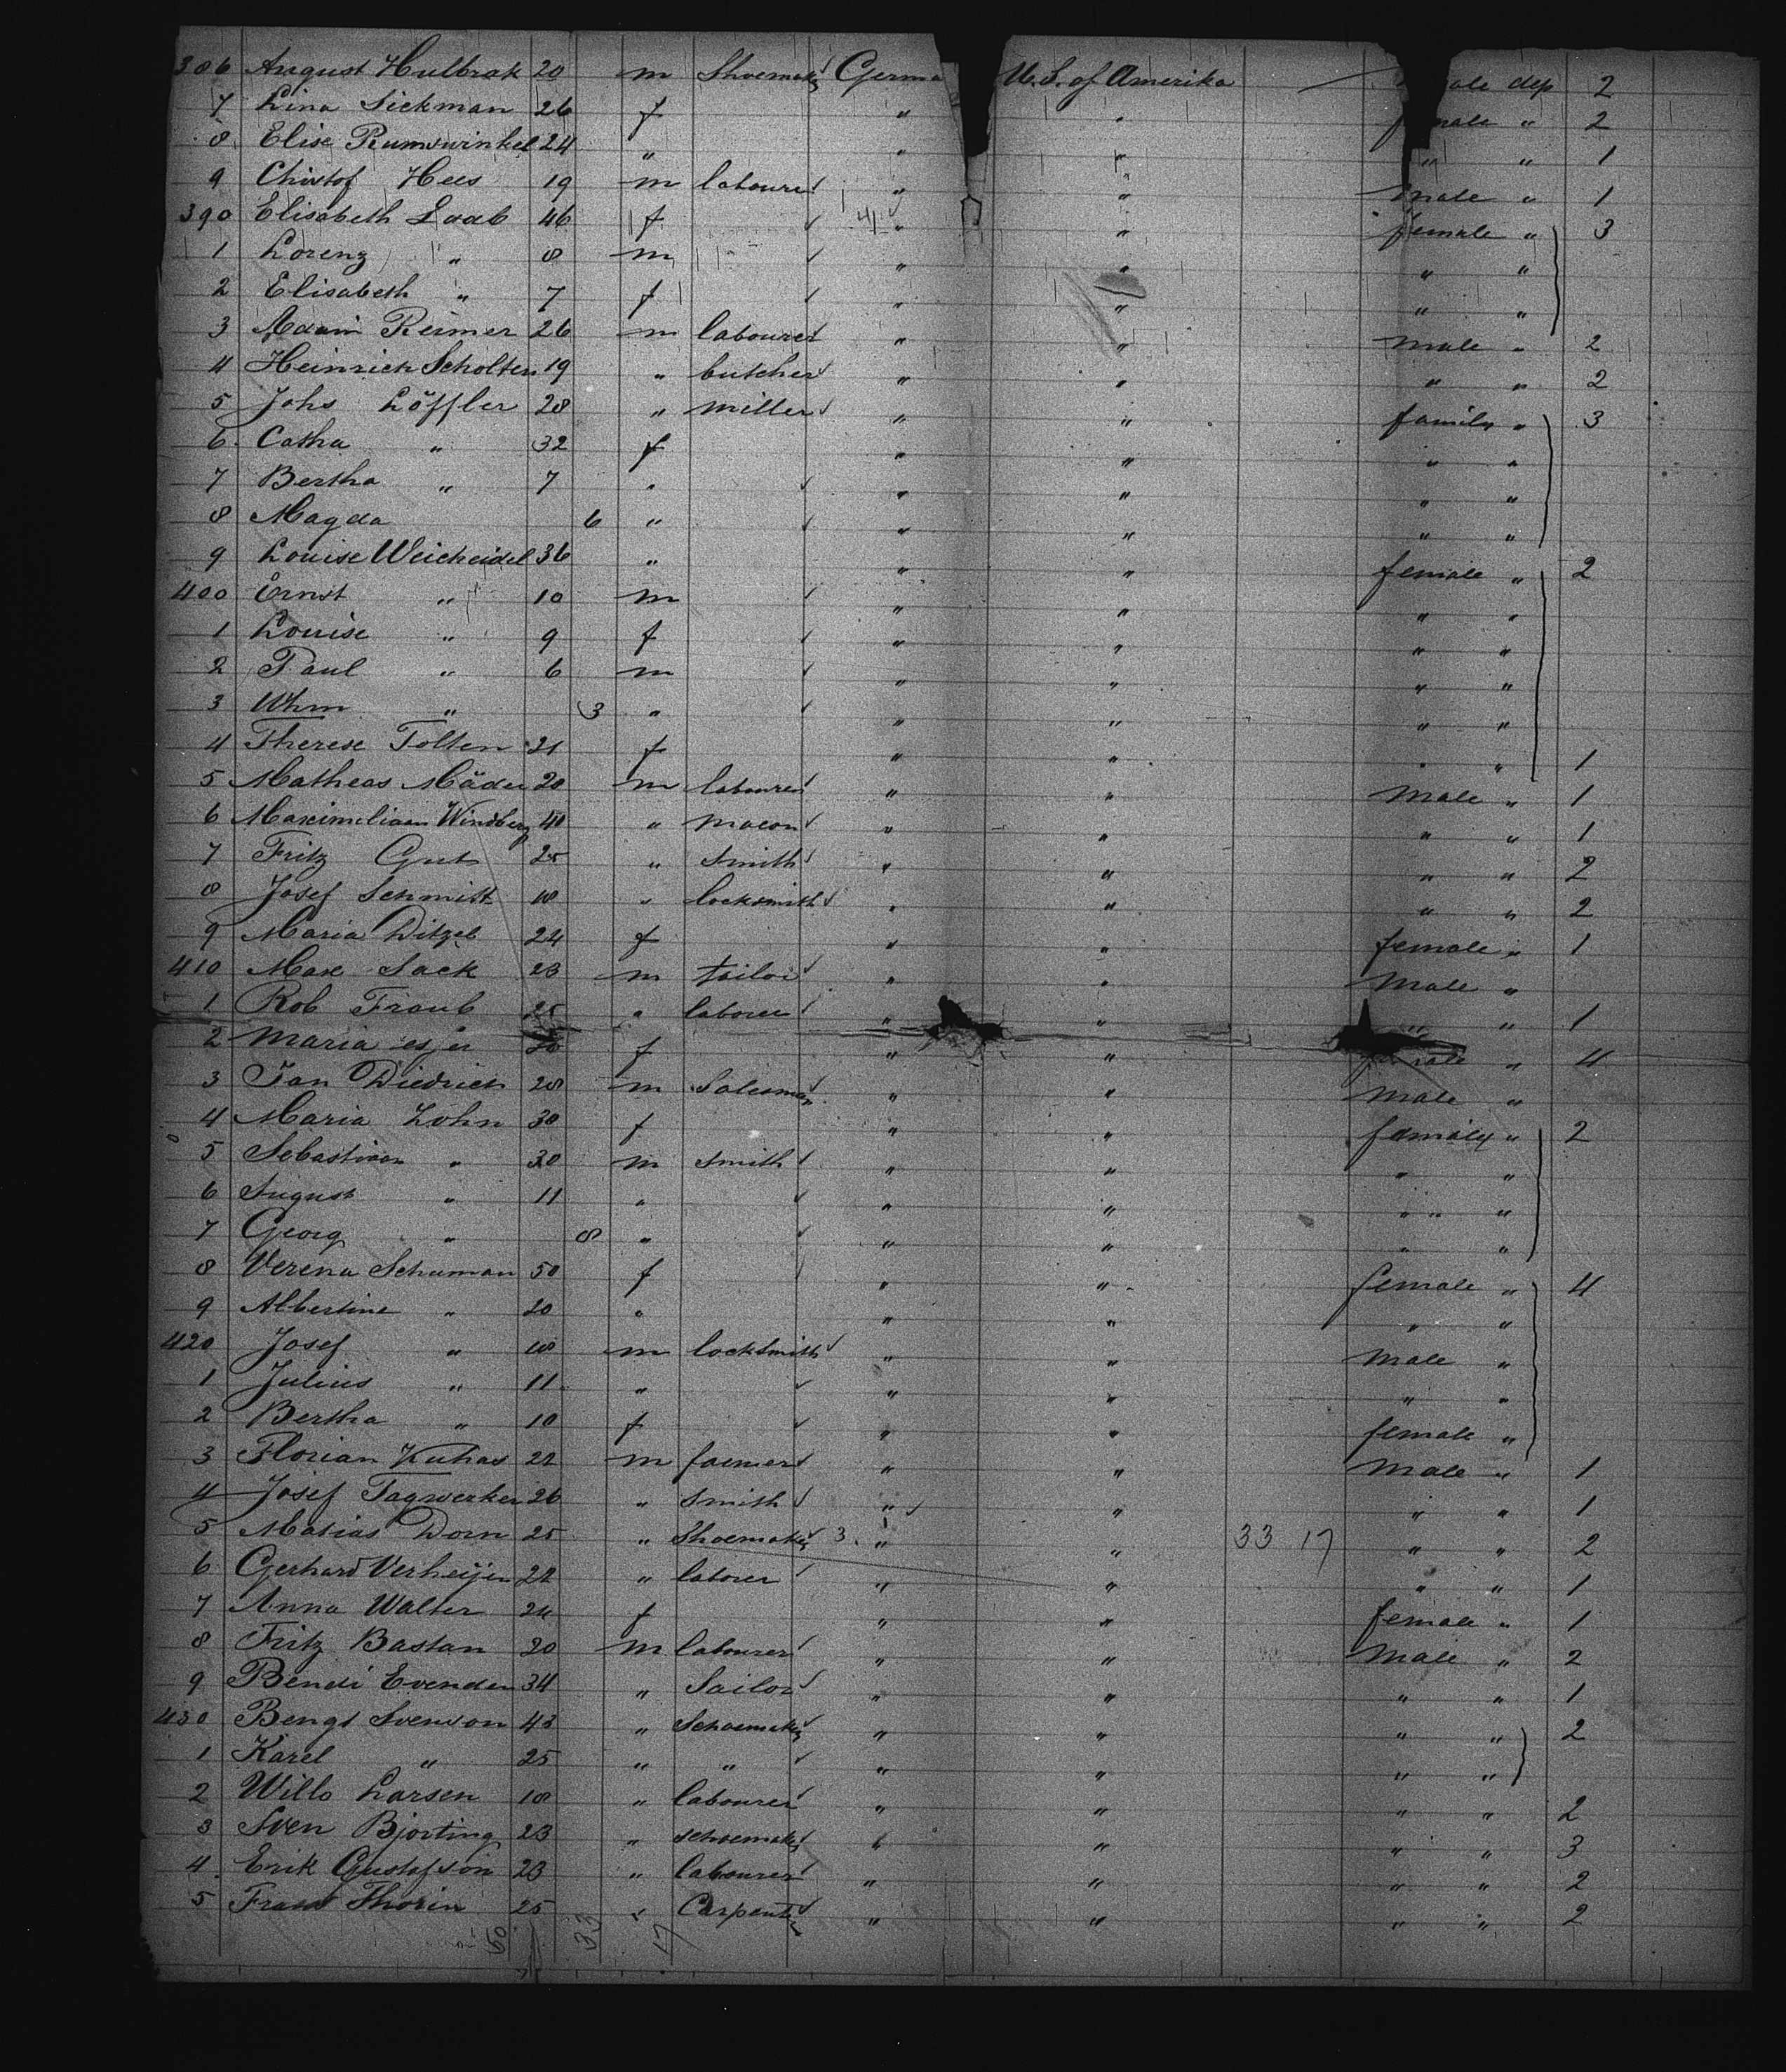 386 August Hulbrak 20 m Shoemaker Germa U.S. of Amerika male dep 2
7 Lina Siekman 26 f " " female " 2
8 Elise Rumswinkel 24 " " " " " 1
9 Christof Hees 19 m labourer " " male " 1
390 Elisabeth Laab 46 f " " female " 3
1 Lorenz " 8 m " " " "
2 Elisabeth " 7 f " " " "
3 Adam Reimer 26 m labourer " " male " 2
4 Heinrich Scholten 19 " butcher " " " " 2
5 Johs Löffler 28 " miller " " family " 3
6 Catha " 32 f " " " "
7 Bertha " 7 " " " " "
8 Magda 6 " " " " "
9 Louise Weicheidel 36 " " " female " 2
400 Ernst " 10 m " " " "
1 Louise " 9 f " " " "
2 Paul " 6 m " " " "
3 Whm " 3 " " " " "
4 Therese Tolten 21 f " " " " 1
5 Matheas Mäder 20 m labourer " " Male " 1
6 Maximiliaan Windberg 40 " macon " " " " 1
7 Fritz Gut 25 " Smith " " " " 2
8 Josef Schmitt 18 " locksmith " " " " 2
9 Maria Ditzel 24 f " " female " 1
410 Max Sack 23 m tailor " " Male "
1 Rob Traub 25 " laborer " " " " 1
2 Maria f " " female " 4
3 Jan Diedrich 28 m Salesman " " Male "
4 Maria Zohn 30 f " " family " 2
5 Sebastiaan " 30 m Smith " " " "
6 August " 11 " " " " "
7 Georg " 8 " " " " "
8 Verena Schuman 50 f " " female " 4
9 Albertine " 20 " " " " "
420 Josef " 18 m locksmith " " Male "
1 Julius " 11 " " " " "
2 Bertha " 10 f " " female "
3 Florian Kuhas 22 m farmer " " Male " 1
4 Josef Tagwerker 26 " Smith " " " " 1
5 Matias Dorn 25 " Shoemaker 3 " " 33 17 " " 2
6 Gerhard Verheijen 22 " laborer " " " " 1
7 Anna Walter 24 f " " female " 1
8 Fritz Bastan 20 m labourer " " Male " 2
9 Bendi Evenden 34 " Sailor " " " " 1
430 Bengt Svenson 43 " Schoemaker " " " " 2
1 Karel " 25 " " " " " "
2 Willo Larsen 18 " labourer " " " " 2
3 Sven Bjorting 23 " schoemaker " " " " 3
4 Erik Gustafson 23 " labourer " " " " 2
5 Frans Thorin 25 " Carpenter " " " " 2
50 33 17